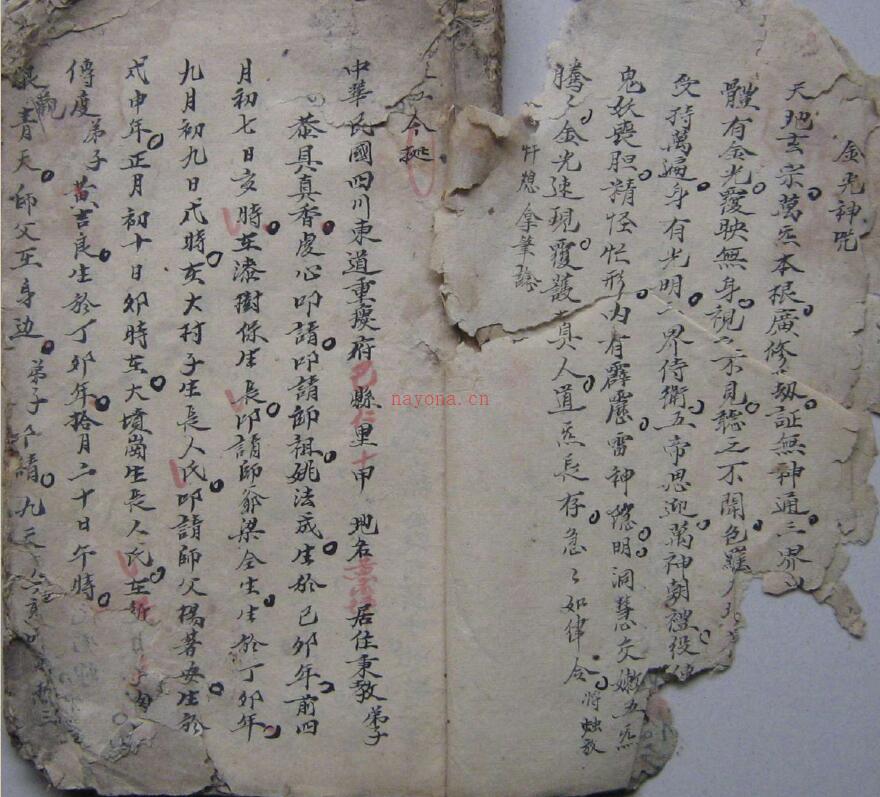 金光神咒
天地玄宗萬炁本根廣修劫証無神通三界
體有金光覆映無身視之不見聽之不聞色羅
受持萬遍身有光明三界侍衛五帝思迎萬神朝禮役
鬼妖喪胆精怪忙形内有霹靂雷神隱明洞慧交嫩五炁
騰之金光速現覆護真人道炁長存急之如律令將
拿筆
今
中華民國四川東道重慶府巴縣仁里十甲地名居住秉教弟子
恭具真香虔心叩請叩請師祖姚法成生於己卯年前四
月初七日亥時在漆樹保生長叩請師爺梁全生生於丁卯年
九月初九日戌時在大村子生長人氏叩請師父楊著安生於
戊申年正月初十日卯時在大墳崗生長人氏在
傳度弟子黃吉良生於丁卯年拾月二十日午時
觀青天師父在身边弟子叩請九天
nayona.cn